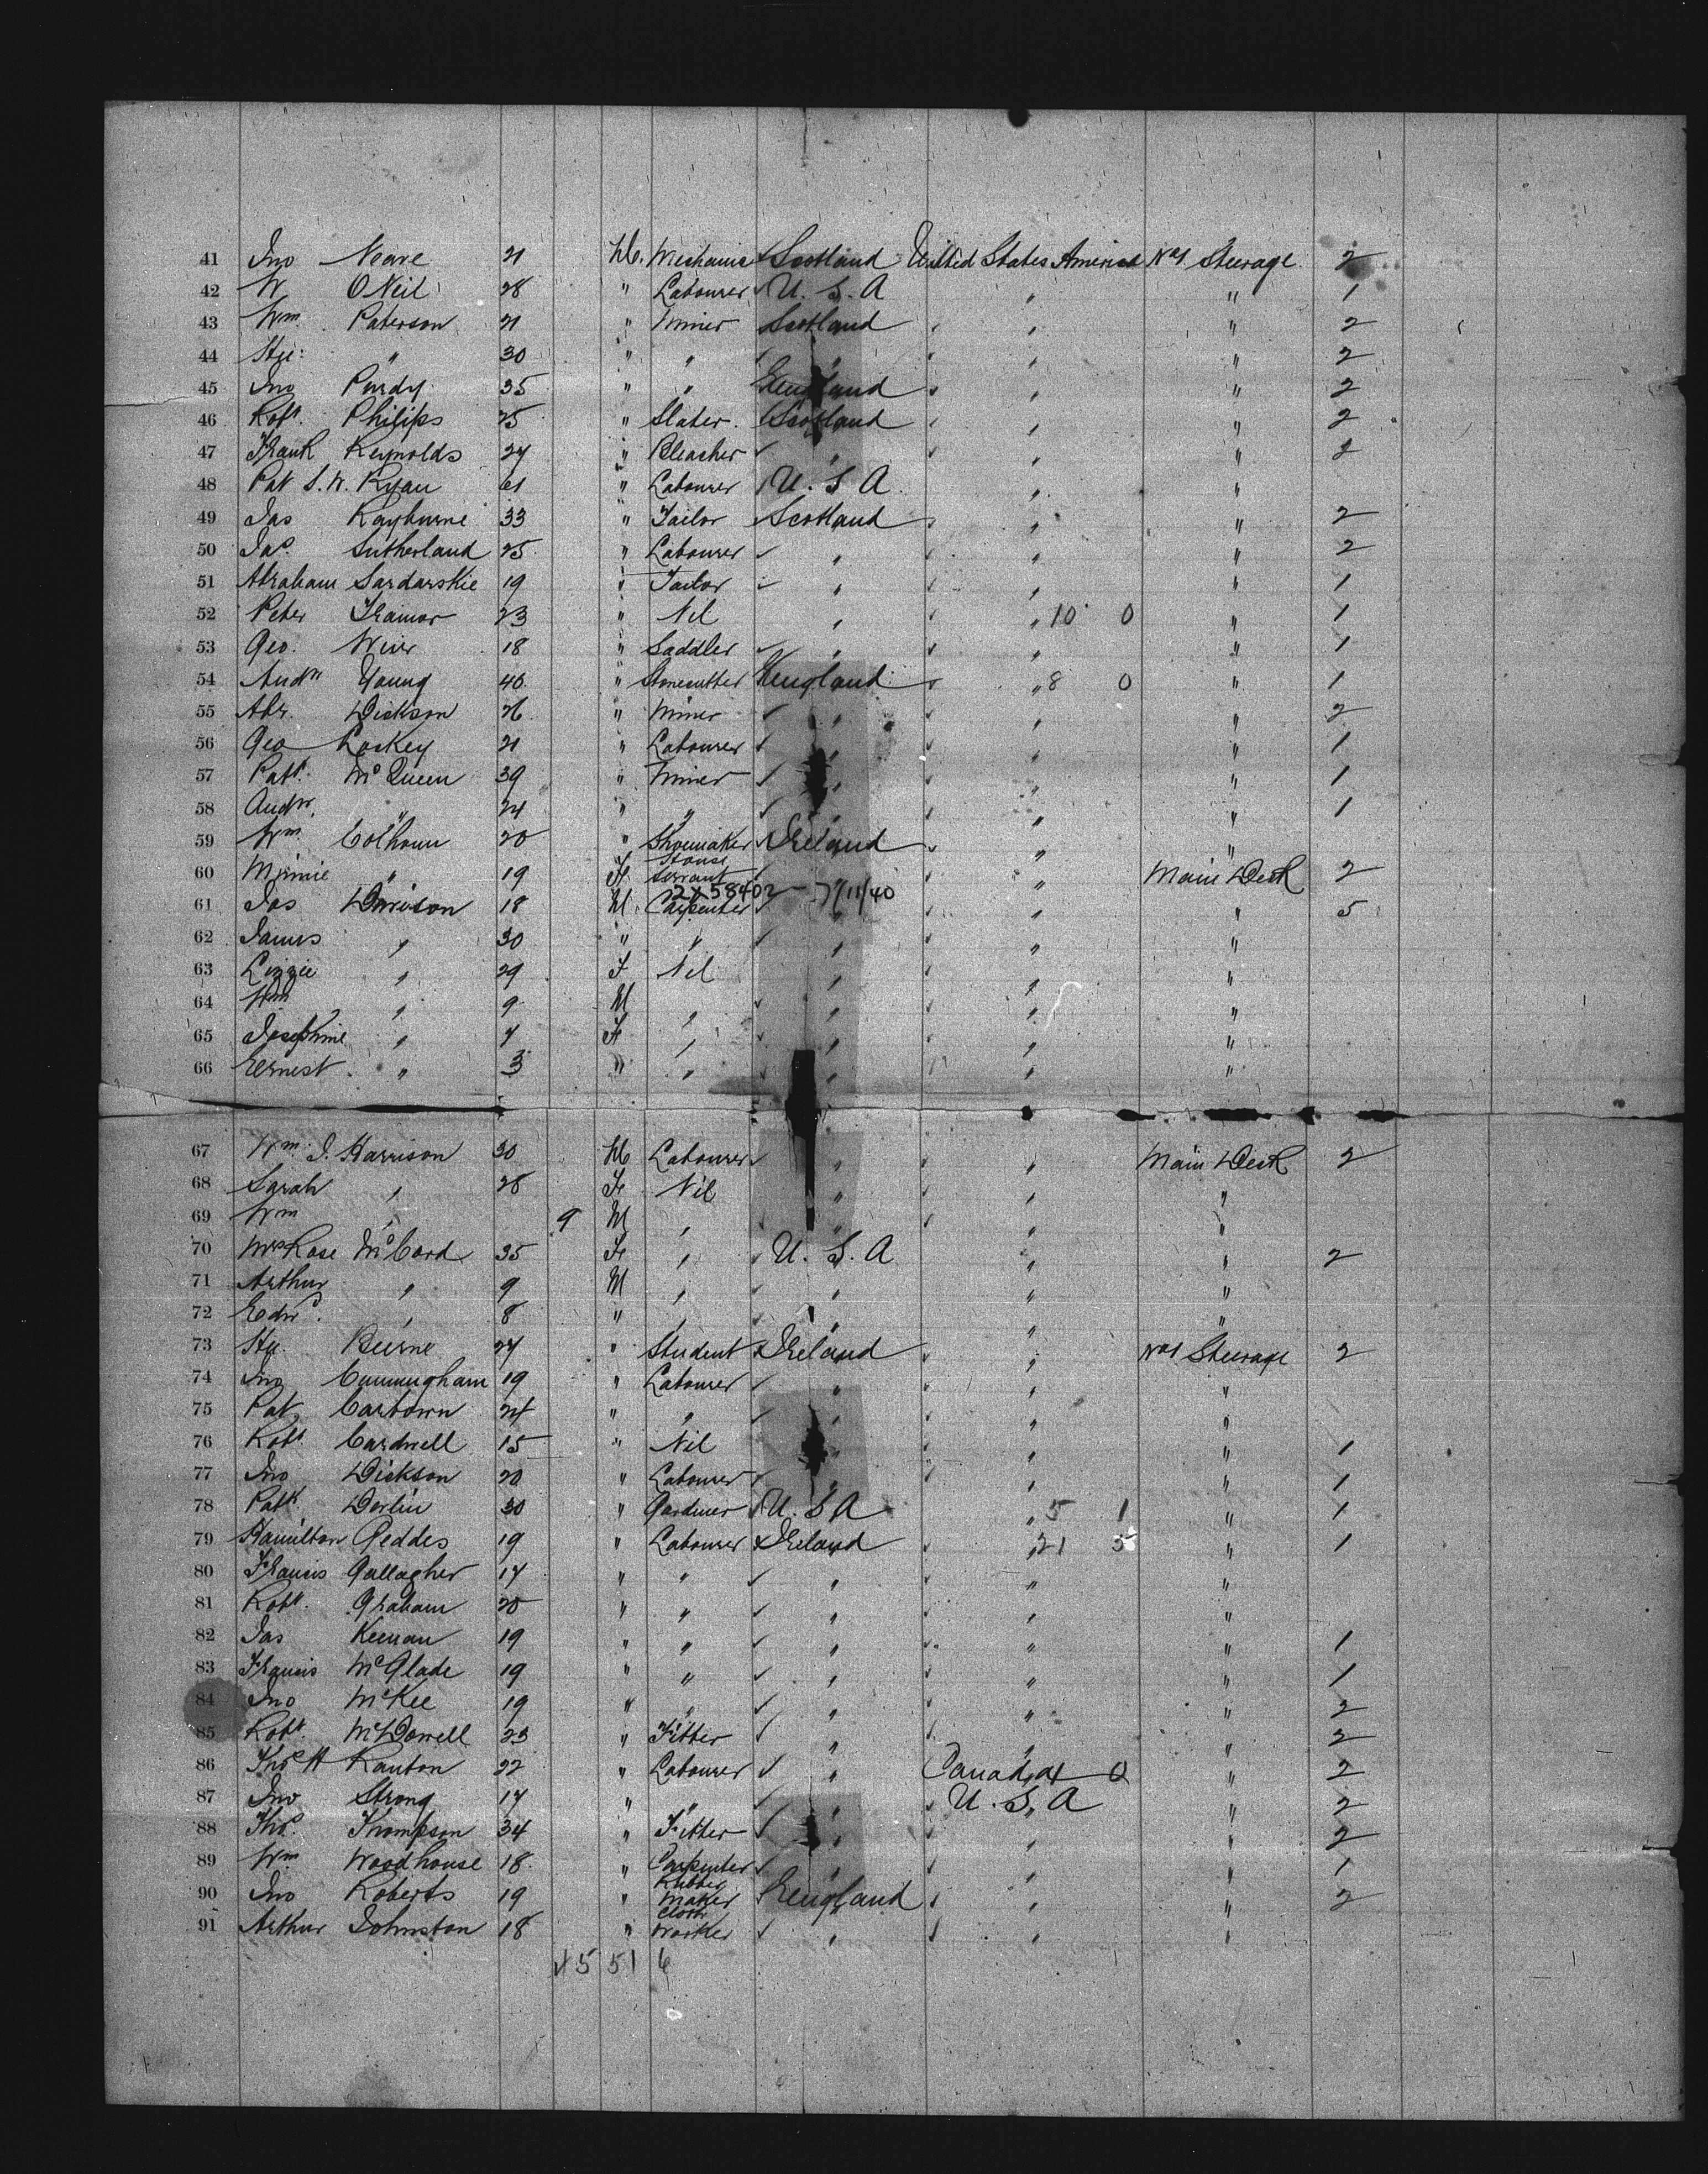 41 Jno Neave 21 M. Mechanic Scotland United States America No 1 Steerage 2
42 W O Neil 28 " Labourer U. S. A " " 1
43 Wm Paterson 21 " Miner Scotland " " 2
44 " 30 " " " " " 2
45 Jno Purdy 35 " " England " " 2
46 Robt. Philips 25 " Slater. Scotland " " 2
47 Frank Reynolds 24 " Bleacher " " " 2
48 Pat Ryan 61 " Labourer U. S. A. " "
49 Jas Rayburne 33 " Tailor Scotland " " 2
50 Sutherland 25 " Labourer " " " 2
51 Abraham Sardarskie 19 " Tailor " " " 1
52 Peter Trainor 23 " Nil " " 10 0 " 1
53 Geo. Weir 18 " Saddler " " " 1
54 Andw Young 40 " Stonecutter England " 8 0 " 1
55 Abr. Dickson 26 " Miner " " " 2
56 Geo Lackey 21 " Labourer " " " 1
57 Patk. McQueen 39 " Miner " " " 1
58 Andw. " 24 " " " " " 1
59 Wm Colhoun 20 " Shoemaker Ireland " "
60 Minnie " 19 F House Servant " " Main Deck 2
2X58402 - 7/11/40
61 Jas Davison 18 M Carpenter " " " 5
62 James " 30 " " " " "
63 Lizzie " 29 F Nil " " "
64 Wm " 9 M " " " "
65 Josephine " 7 F " " " "
66 Ernest " 3 " " " " "
67 Wm. J. Harrison 30 M Labourer " " Main Deck 2
68 Sarah " 28 F Nil " " "
69 Wm " 9 M " " " "
70 Mrs Rose McCord 35 F " U. S. A " " 2
71 Arthur " 9 M " " " "
72 Edwd. " 8 " " " " "
73 Beirne 24 " Student Ireland " No 1 Steerage 2
74 Jno Cunningham 19 " Labourer " " "
75 Pat Cartown 24 " " " " "
76 Robt. Cardwell 15 " Nil " " " 1
77 Jno Dickson 20 " Labourer " " " 1
78 Patk. Devlin 30 " Gardener U. S. A " 5 1 " 1
79 Hamilton Geddes 19 " Labourer Ireland " 21 5 " 1
80 Francis Gallagher 17 " " " " "
81 Robt. Graham 20 " " " " "
82 Jas Keenan 19 " " " " " 1
83 Francis McGlade 19 " " " " " 1
84 Jno McKee 19 " " " " " 2
85 Robt McDowell 23 " Fitter " " " 2
86 Thos H Ranton 22 " Labourer " Canada 0 " 2
87 Jno Strong 17 " " " U. S. A " 2
88 Thos. Thompson 34 " Fitter " " " 2
89 Wm Woodhouse 18 " Carpenter " " " 1
90 Jno Roberts 19 " Rubber Maker England " " 2
91 Arthur Johnston 18 " Cloth Worker " " "
45 51 6